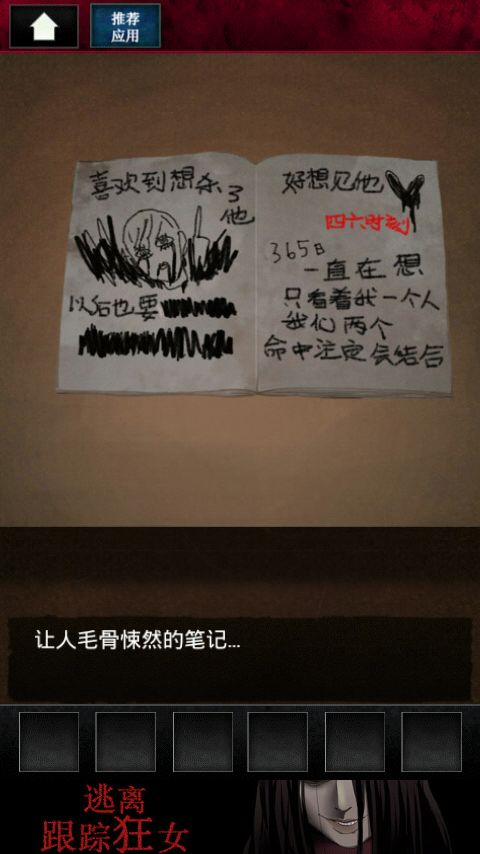 推荐
应用
喜欢到想杀了
他
以后也要
好想见他
四六时刻
365日
一直在想
只看着我一个人
我们两个
命中注定会结合
让人毛骨悚然的笔记...
逃离
跟踪狂女